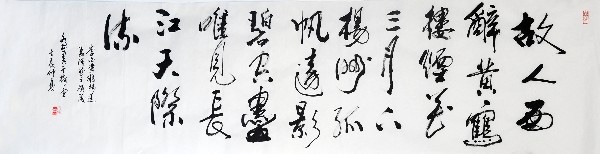 故人西
辭黄鶴
樓煙花
三月下
楊州孤
帆遠影
碧空盡
唯見長
江天際
流
李白黄鶴樓送
孟浩然之廣陵